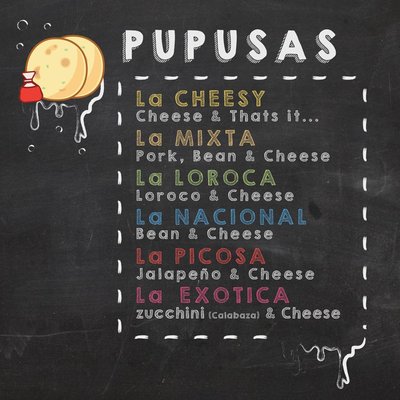 PUPUSAS
La CHEESY
Cheese & Thats it...
La MIXTA
Pork, Bean & Cheese
La LOROCA
Loroco & Cheese
La NACIONAL
Bean & Cheese
La PICOSA
Jalapeño & Cheese
La EXOTICA
zucchini (Calabaza) & Cheese